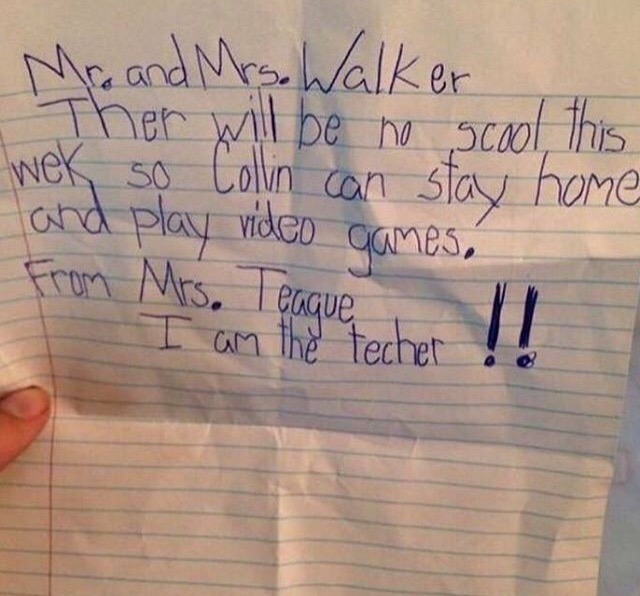 Mr. and Mrs. Walker
Ther will be no scool this
wek so Collin can stay home
and play video games.
From Mrs. Teague
I am the techer !!